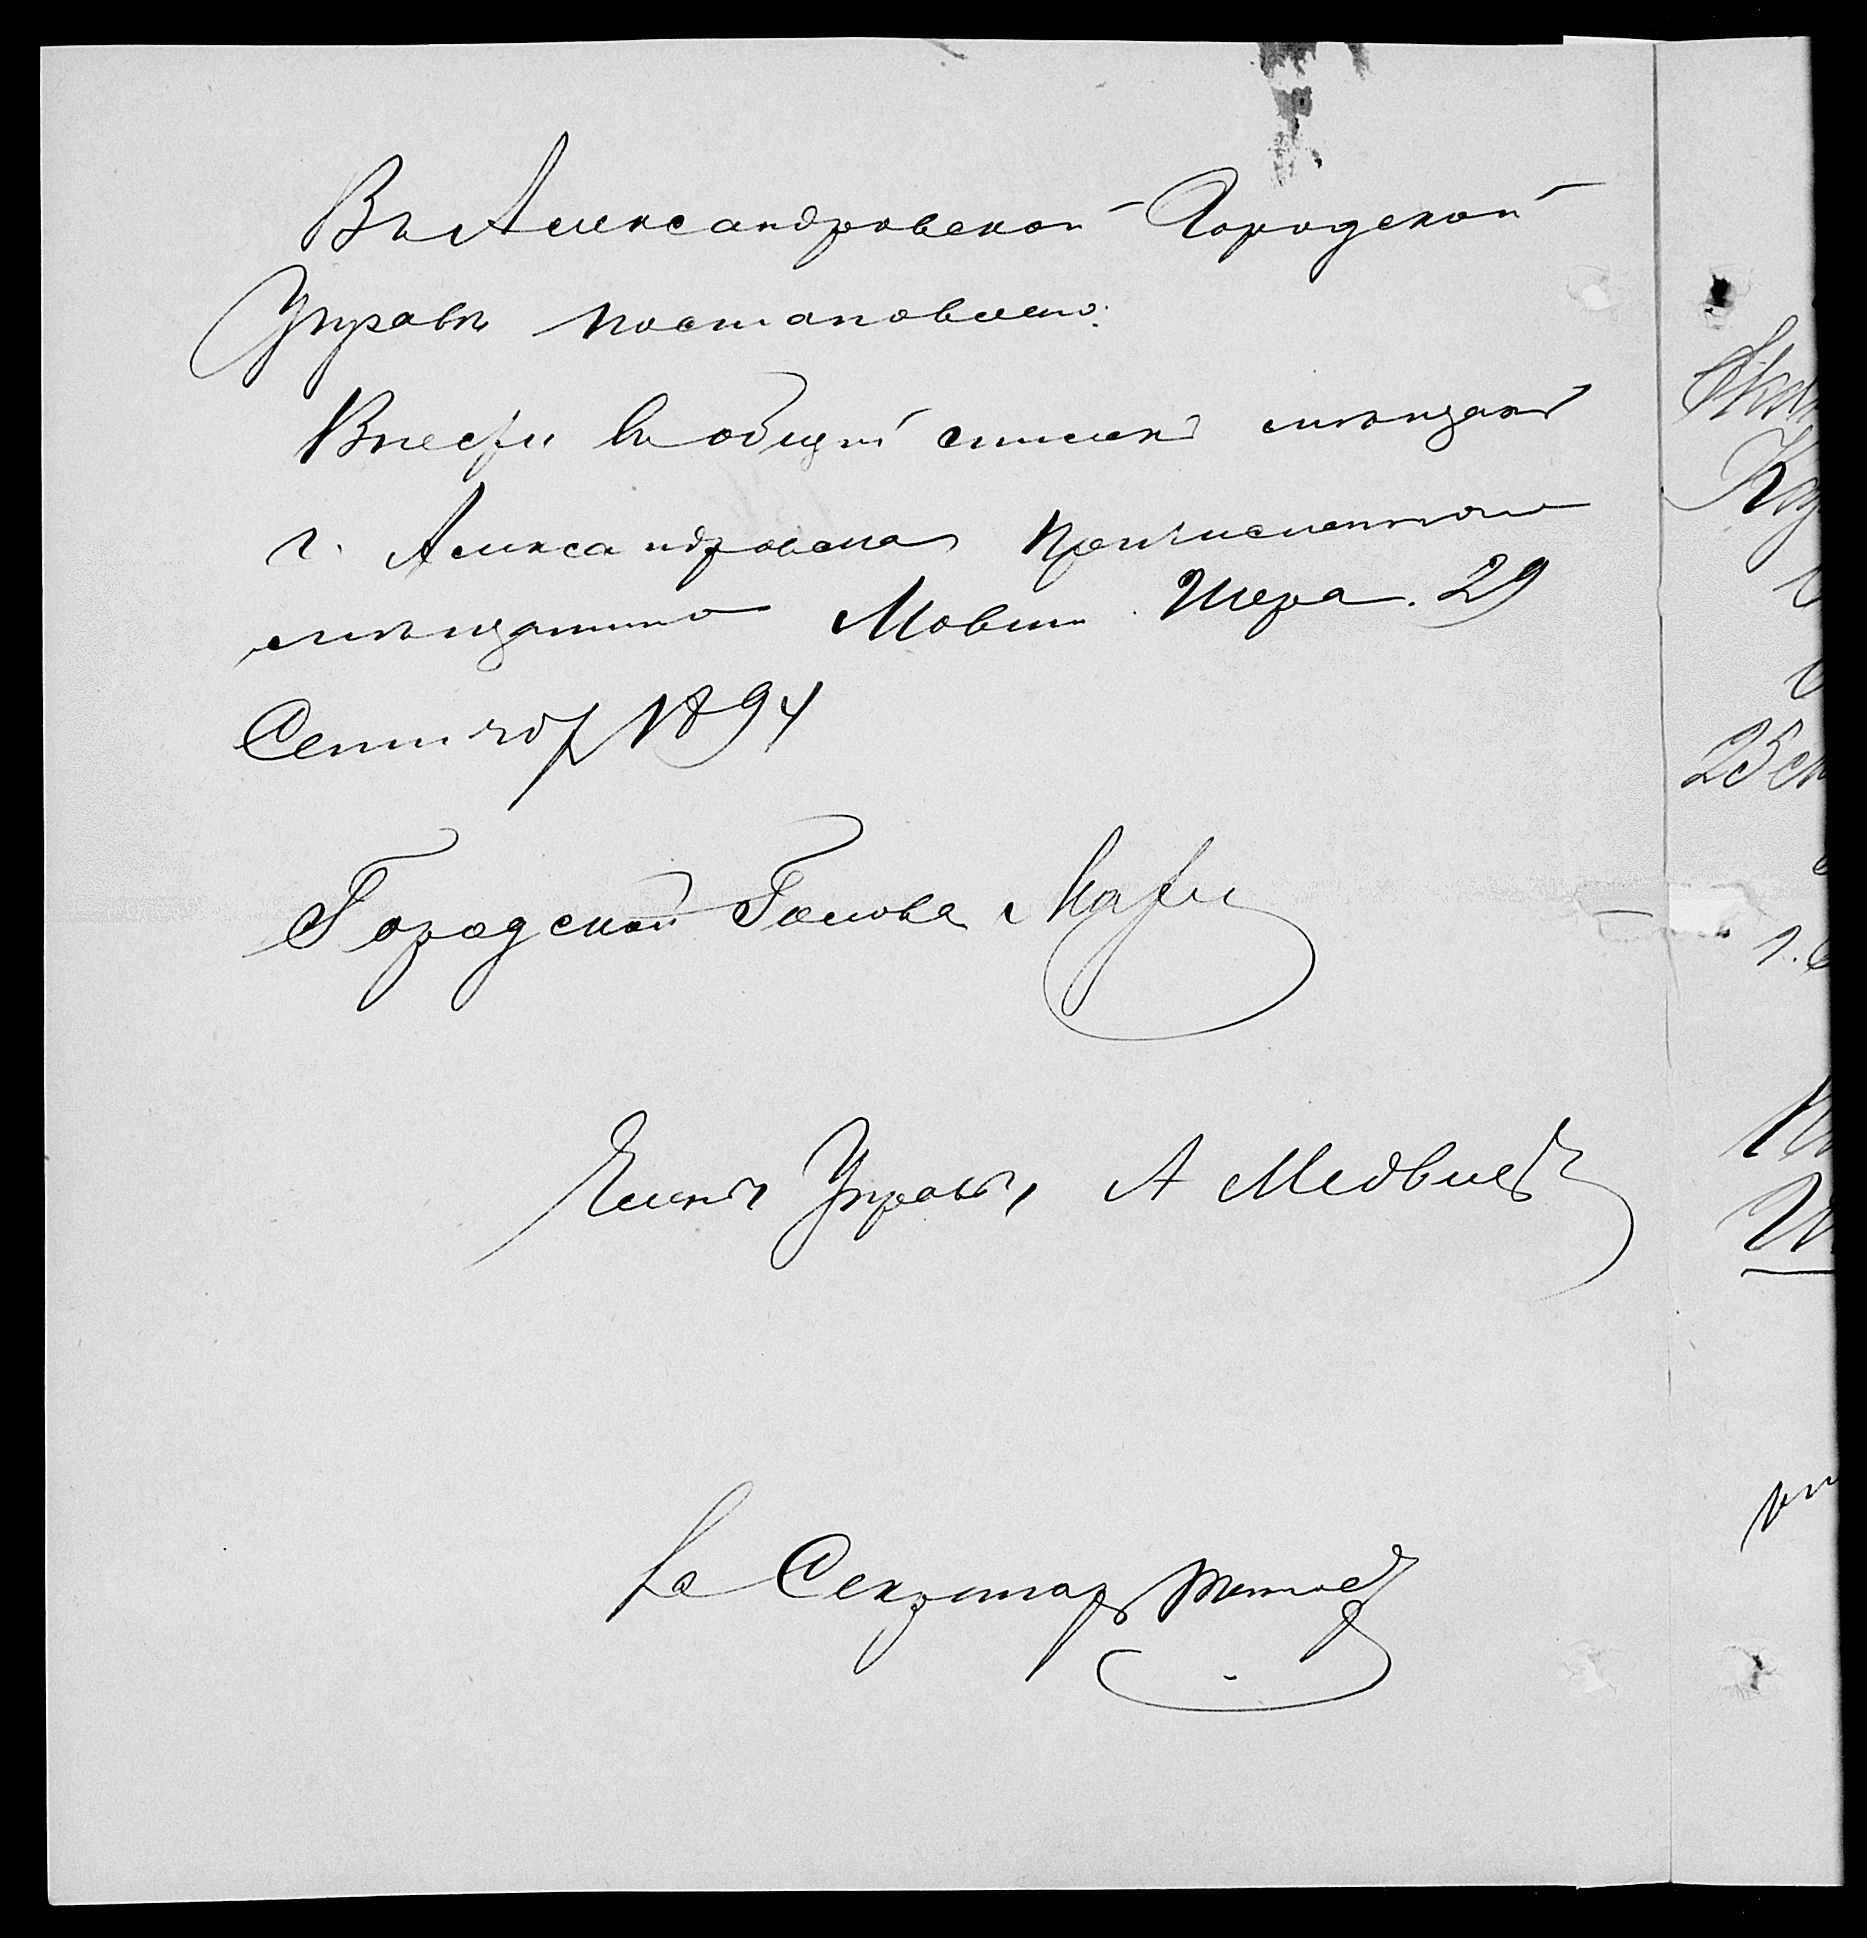 Въ Александровской Городской
Управѣ постановлено:
Внести въ общій списокъ мѣщанъ
г. Александровска причисленнаго
мѣщанина Мовшу Шера. 29
Сентябр 1894
Городской Голова
Членъ Управы, А Медвѣдевъ
За Секретаря
25
г.